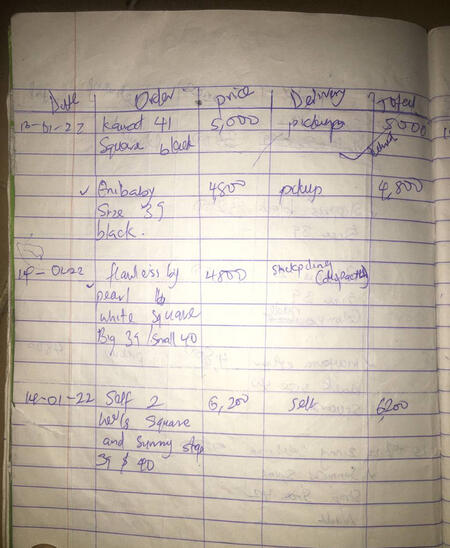 Date Order price Delivery Total
13-01-22 41 5,000 pickup 5000
Square black
Enibaby 4800 pickup 4,800
Size 39
black.
flawless by 4800
pearl
white Square
Big 39 / Small 40
14-01-22 Self 2 6,200 self 6200
Square
and Sunny strap
39 $ 40